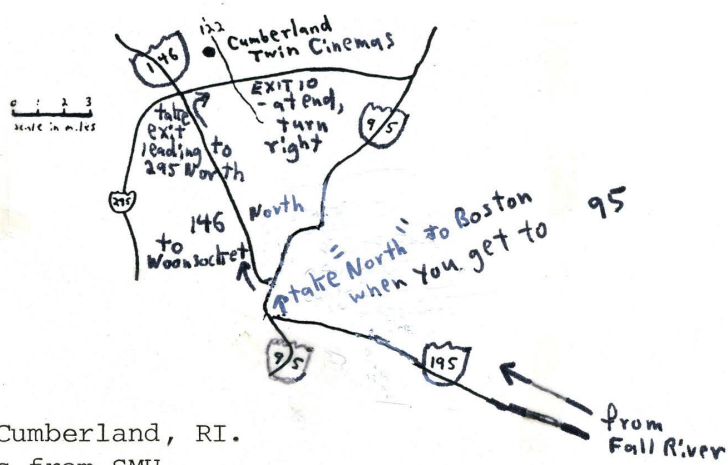 122
Cumberland
Twin Cinemas
146
0 1 2 3
scale in miles
EXIT 10
- at end,
turn
right
take
exit
leading to
295 North
95
295
146 North
to
Woonsocket
take "North" to Boston
when you get to 95
95
195
from
Fall River
Cumberland, RI.
from SMU